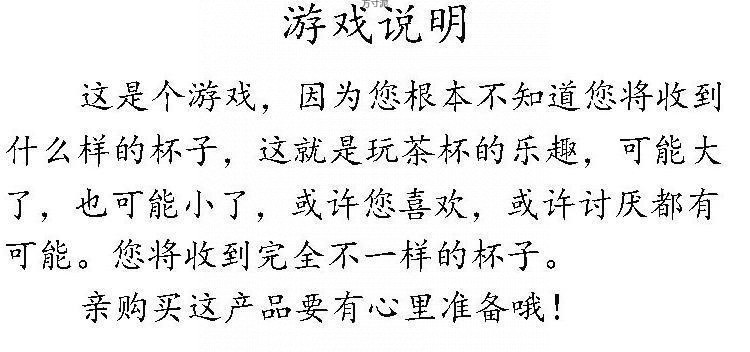 游戏说明
这是个游戏，因为您根本不知道您将收到
什么样的杯子，这就是玩茶杯的乐趣，可能大
了，也可能小了，或许您喜欢，或许讨厌都有
可能。您将收到完全不一样的杯子。
亲购买这产品要有心里准备哦！